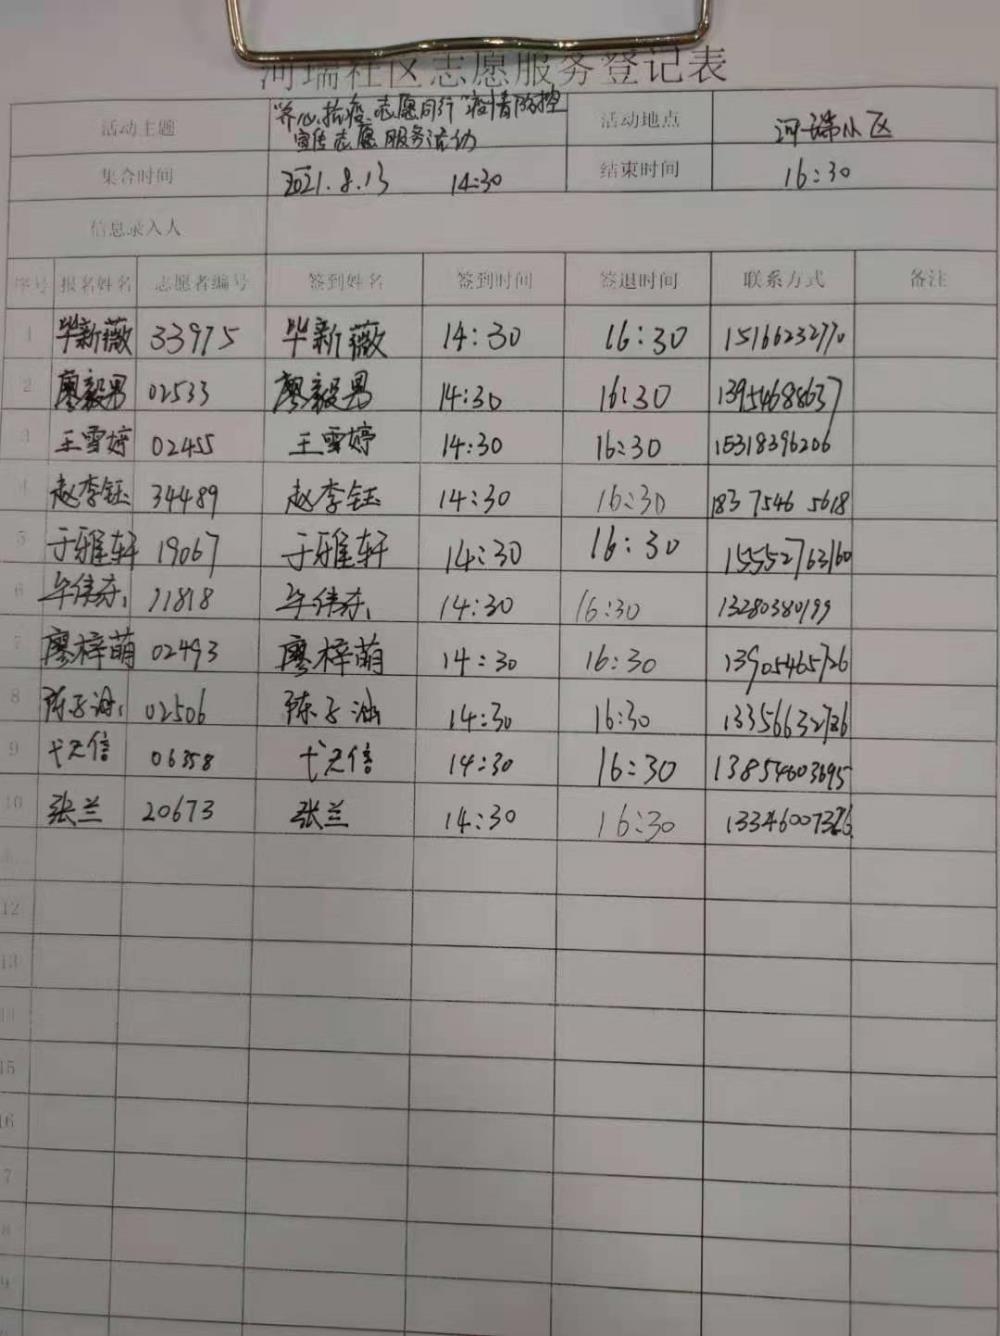 河瑞社区志愿服务登记表
活动主题 "齐心抗疫、志愿同行"疫情防控 活动地点 河瑞小区
宣传志愿服务活动
集合时间 2021.8.13 14:30 结束时间 16:30
信息录入人
序号 报名姓名 志愿者编号 签到姓名 签到时间 签退时间 联系方式 备注
1 毕新薇 33975 毕新薇 14:30 16:30 15166232770
2 廖毅男 02533 廖毅男 14:30 16:30 13954688637
3 王雪婷 02455 王雪婷 14:30 16:30 15318396206
4 赵李钰 34489 赵李钰 14:30 16:30 183 7546 5618
5 于雅轩 19067 于雅轩 14:30 16:30 15552763160
6 11818 14:30 16:30 13280380199
7 廖梓萌 02493 廖梓萌 14:30 16:30 13905465726
8 02506 14:30 16:30 13356632726
9 06358 14:30 16:30 13854603695
10 张兰 20673 张兰 14:30 16:30 13346007326
12
13
15
16
7
8
9